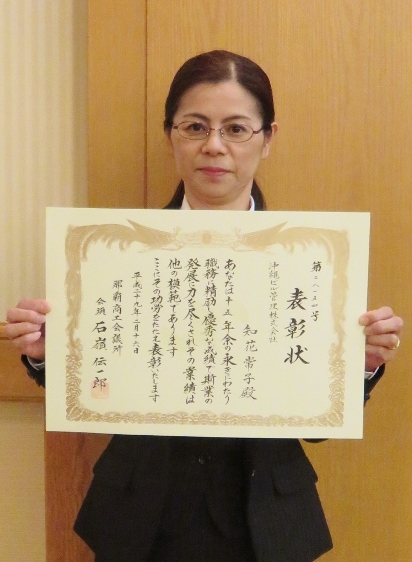 第二八一五四号
表彰状
沖縄ビル管理株式会社
知花常子殿
あなたは十五年余の永きにわたり
職務に精励し優秀な成績で斯業の
発展に力を尽くされその業績は
他の模範であります
ここにその功労をたたえ表彰いたします
平成二十九年二月十六日
那覇商工会議所
会頭 石嶺伝一郎